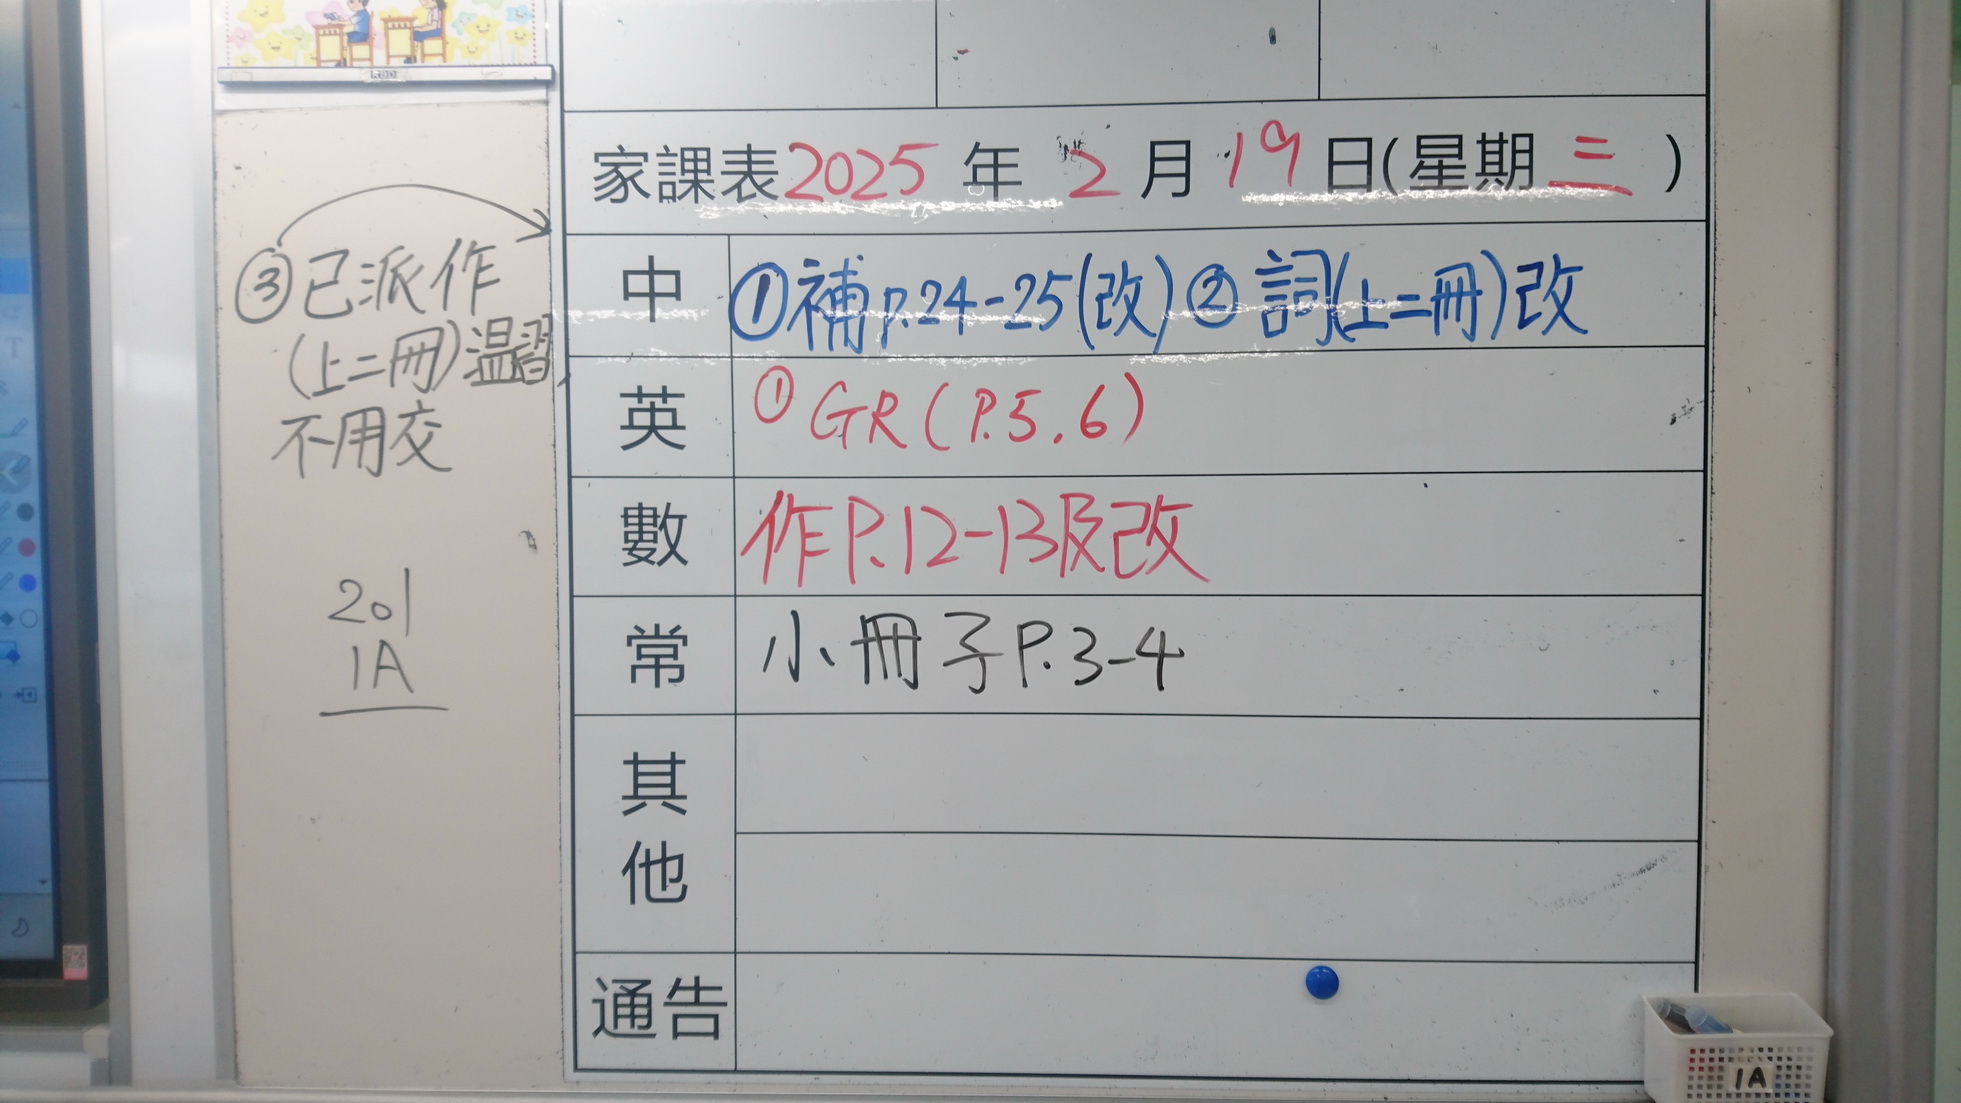 家課表2025年 2月19日(星期三)
中 ①補p.24-25(改)②詞(上二冊)改
③已派作
(上二冊)溫習
不用交
英 ①GR(P.5,6)
數 作P.12-13及改
常 小冊子P.3-4
其他
通告
201
1A
1A